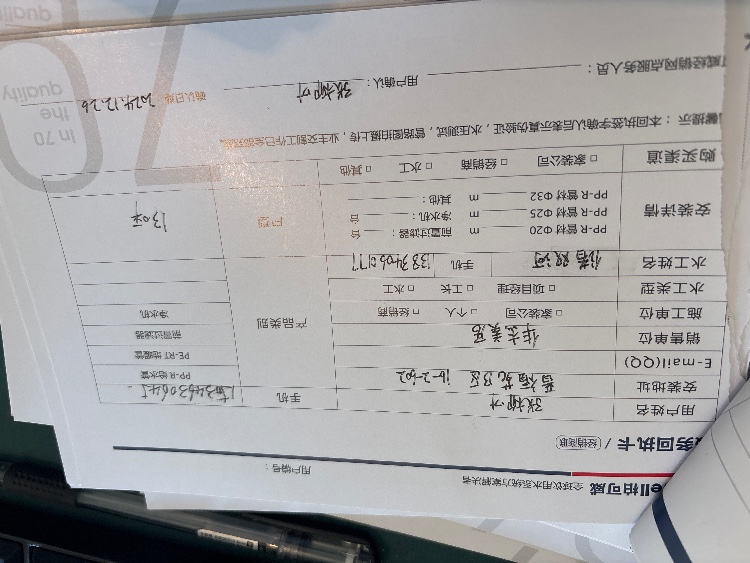 ell柏可威 全球饮用水系统方案解决者
用户编号：
务回执卡 / 经销商联
用户姓名 张柳才 手机
安装地址 16-2-602
E-mail(QQ)
销售单位
施工单位 □ 家装公司 □ 个人 □ 经销商
水工类型 □ 项目经理 □ 工长 □ 水工
水工姓名 手机 13834060177
产品类别
PP-R 给水管
PE-RT 地暖管
前置过滤器
净水机
安装详情
PP-R 管材 Φ20 m 前置过滤器： 台
PP-R 管材 Φ25 m 净水机： 台
PP-R 管材 Φ32 m 其他：
户型 130平
购买渠道 □ 家装公司 □ 经销商 □ 水工 □ 其他
馨提示：本回执签字确认后表示真伪验证，水压测试，管路图拍摄上传，业主交割工作已全部完成。
威经销网点服务人员： 用户确认： 张柳才 确认日期 2024.12.26
in 70
the
quality
quality